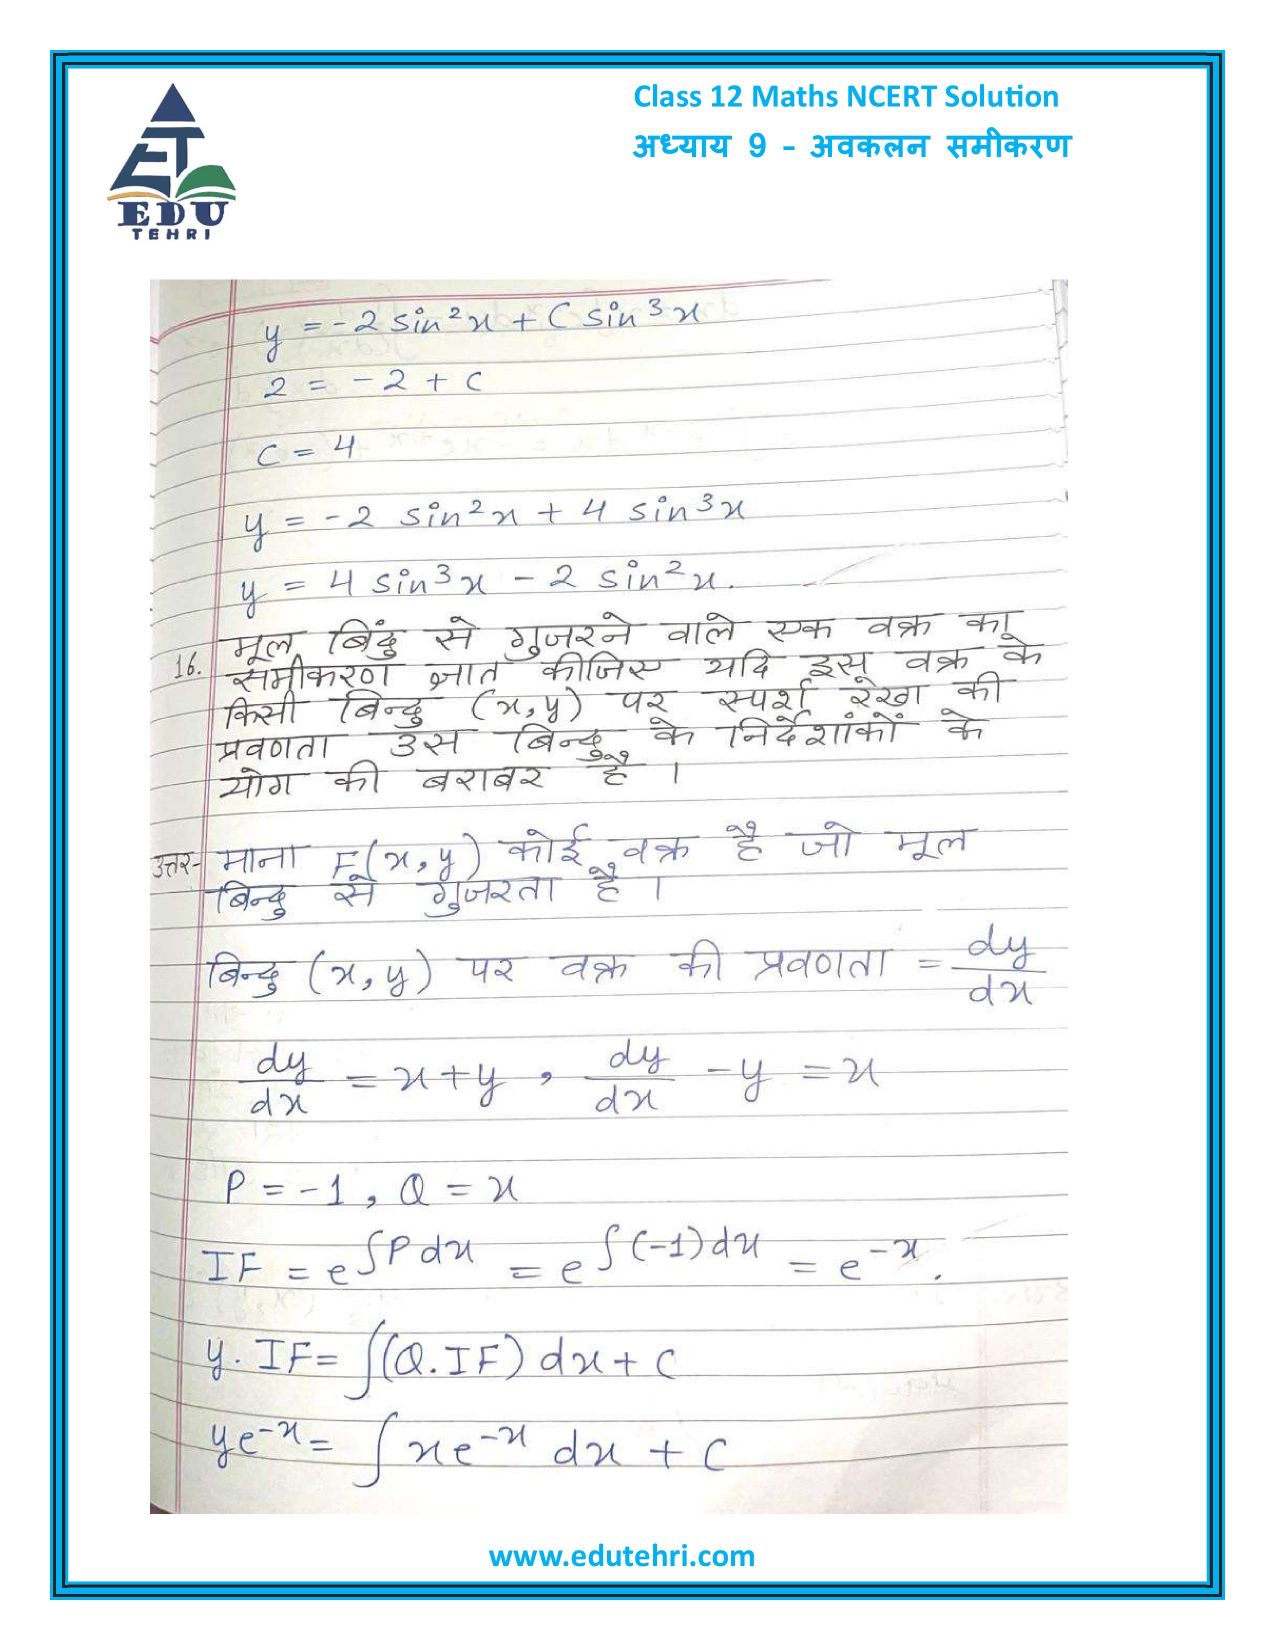 Class 12 Maths NCERT Solution
अध्याय 9 – अवकलन समीकरण
EDU
TEHRI
y = -2 sin²x + C sin³x
2 = -2 + C
C = 4
y = -2 sin²x + 4 sin³x
y = 4 sin³x - 2 sin²x.
16. मूल बिंदु से गुजरने वाले एक वक्र का
समीकरण ज्ञात कीजिए यदि इस वक्र के
किसी बिन्दु (x,y) पर स्पर्श रेखा की
प्रवणता उस बिन्दु के निर्देशांकों के
योग की बराबर है ।
उत्तर- माना F(x,y) कोई वक्र है जो मूल
बिन्दु से गुजरता है ।
बिन्दु (x,y) पर वक्र की प्रवणता = dy/dx
dy/dx = x+y , dy/dx - y = x
P = -1, Q = x
IF = e^∫Pdx = e^∫(-1)dx = e^-x.
y. IF = ∫(Q.IF) dx + C
ye^-x = ∫ xe^-x dx + C
www.edutehri.com